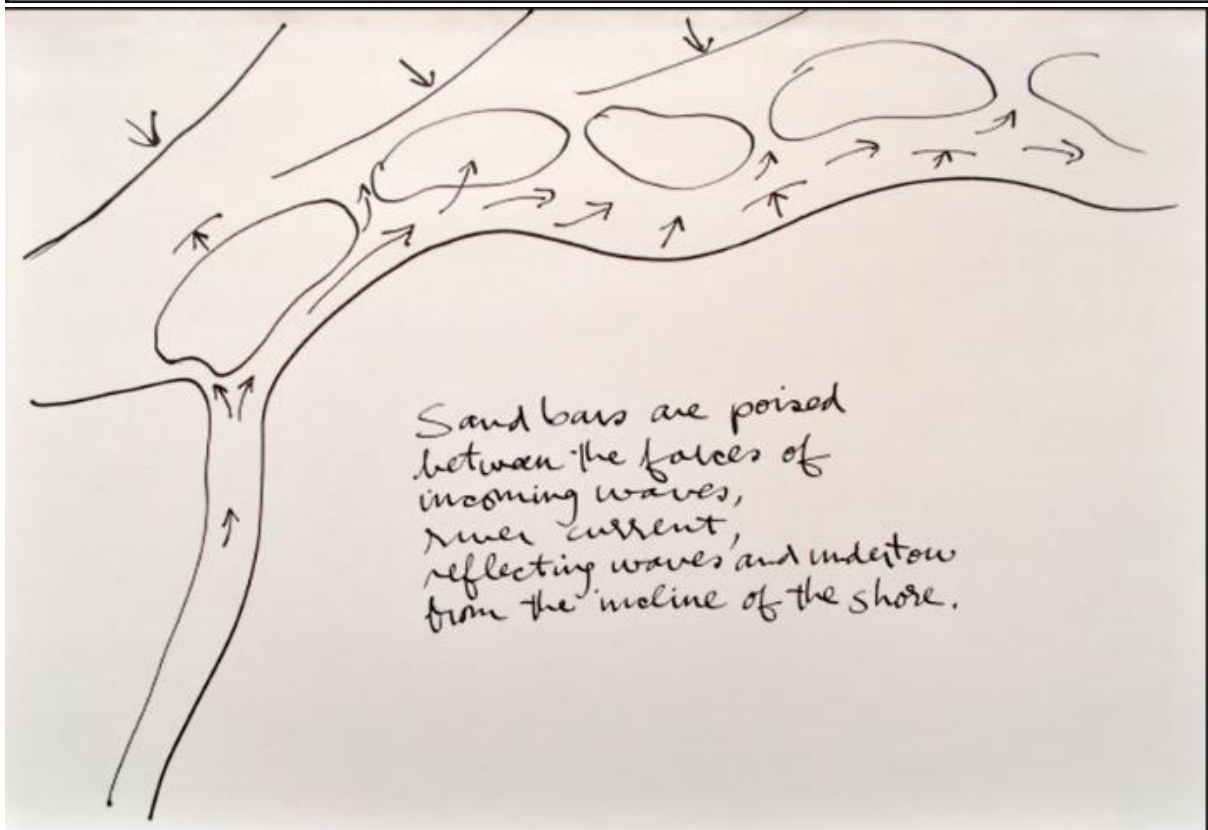 Sand bars are poised
between the forces of
incoming waves,
river current,
reflecting waves and undertow
from the incline of the shore.